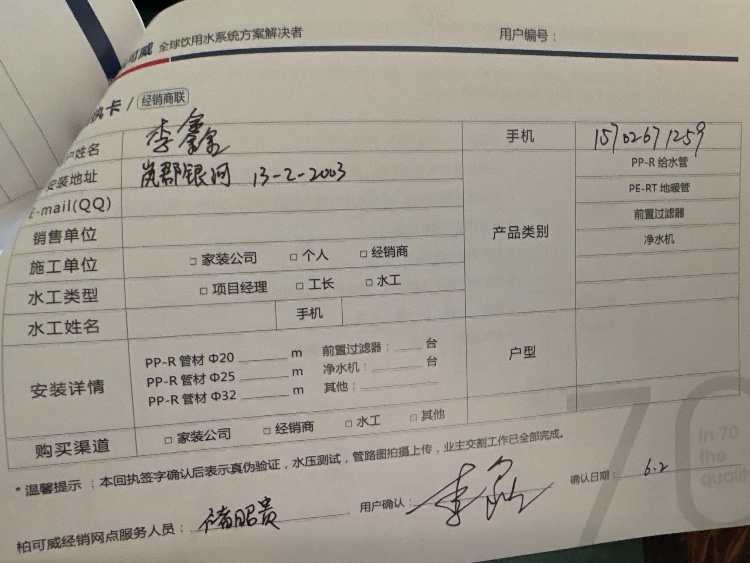 可威 全球饮用水系统方案解决者 用户编号：
执卡 / 经销商联
户姓名 李鑫 手机 15702671259
安装地址 岚郡银河 13-2-2003 产品类别 PP-R 给水管
E-mail(QQ) PE-RT 地暖管
销售单位 前置过滤器
施工单位 □ 家装公司 □ 个人 □ 经销商 净水机
水工类型 □ 项目经理 □ 工长 □ 水工
水工姓名 手机
安装详情 户型
PP-R 管材 Φ20 ______ m 前置过滤器：____ 台
PP-R 管材 Φ25 ______ m 净水机：____ 台
PP-R 管材 Φ32 ______ m 其他：______
购买渠道 □ 家装公司 □ 经销商 □ 水工 □ 其他
* 温馨提示 ：本回执签字确认后表示真伪验证，水压测试，管路图拍摄上传，业主交割工作已全部完成。
柏可威经销网点服务人员： 储昭贵 用户确认： 李鑫 确认日期： 6.2
70
In 70
the
quality